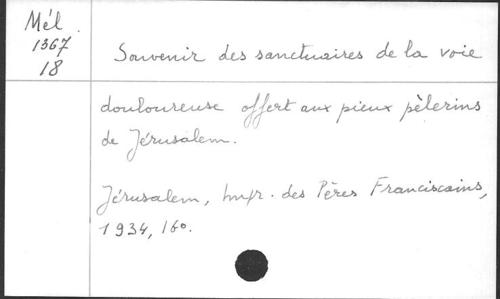 Mél.
1367
18
Souvenir des sanctuaires de la voie
douloureuse offert aux pieux pèlerins
de Jérusalem.
Jérusalem, Impr. des Pères Franciscains,
1934, 16°.